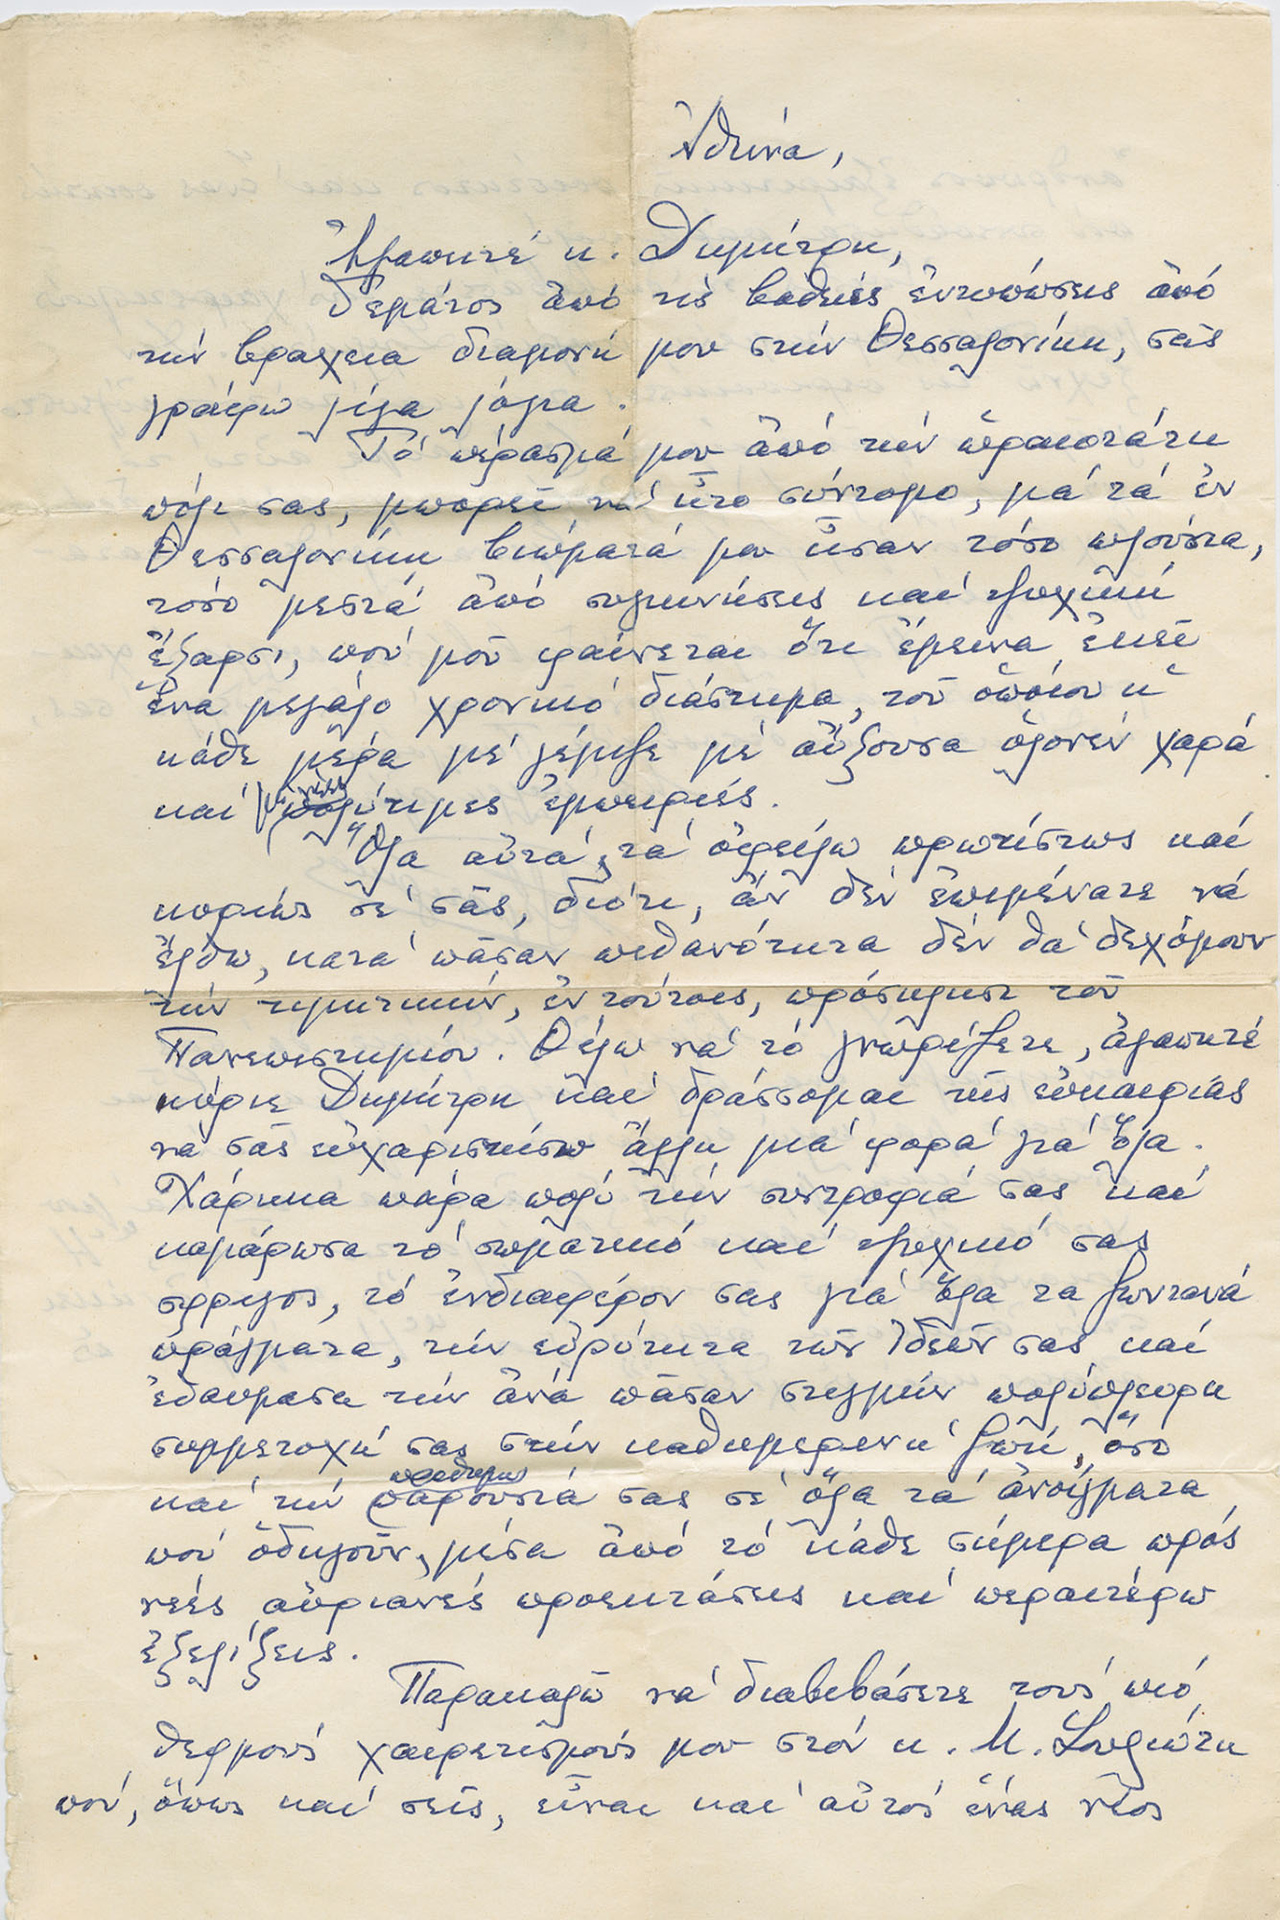 Ἀθήνα,
Ἀγαπητέ κ. Δημήτρη,
Γεμάτος ἀπό τίς βαθιές ἐντυπώσεις ἀπό
τήν βραχεια διαμονή μου στήν Θεσσαλονίκη, σᾶς
γράφω λίγα λόγια.
Τό πέρασμά μου ἀπό τήν ὡραιοτάτη
πόλι σας, μπορεῖ νά ἦτο σύντομο, μά τά ἐν
Θεσσαλονίκῃ βιώματά μου ἦσαν τόσο πλούσια,
τόσο μεστά ἀπό συγκινήσεις καί ψυχική
ἔξαρσι, πού μοῦ φαίνεται ὅτι ἔμεινα ἐκεῖ
ἕνα μεγάλο χρονικό διάστημα, τοῦ ὁποίου ἡ
κάθε μέρα μέ γέμιζε μέ αὔξουσα ὁλονέν χαρά
καί πολύτιμες ἐμπειρίες.
Ὅλα αὐτά, τά ὀφείλω πρωτίστως καί
κυρίως σέ σᾶς, διότι, ἄν δέν ἐπιμένατε νά
ἔλθω, κατά πᾶσαν πιθανότητα δέν θά δεχόμουν
τήν τιμητικήν, ἐν τούτοις, πρόσκλησι τοῦ
Πανεπιστημίου. Θέλω νά τό γνωρίζετε, ἀγαπητέ
κύριε Δημήτρη καί δράσσομαι τῆς εὐκαιρίας
να σᾶς εὐχαριστήσω ἄλλη μιά φορά γιά ὅλα.
Χάρηκα πάρα πολύ τήν συντροφιά σας καί
καμάρωσα τό σωματικό καί ψυχικό σας
σφρῖγος, τό ἐνδιαφέρον σας γιά ὅλα τα ζωντανά
πράγματα, τήν εὐρύτητα τῶν ἰδεῶν σας καί
ἐθαύμασα τήν ἀνά πᾶσαν στιγμήν πολύπλευρη
συμμετοχή σας στήν καθημερινή ζωή, ὅσο
καί τήν πρόθυμη παρουσία σας σέ ὅλα τά ἀνοίγματα
πού ὁδηγοῦν, μέσα ἀπό τό κάθε σήμερα πρός
νέες αὐριανές προεκτάσεις καί περαιτέρω
ἐξελίξεις.
Παρακαλῶ νά διαβιβάσετε τούς πιό
θερμούς χαιρετισμούς μου στόν κ. Μ. Σουλιώτη
πού, ὅπως καί σεῖς, εἶναι καί αὐτός ἕνας νέος